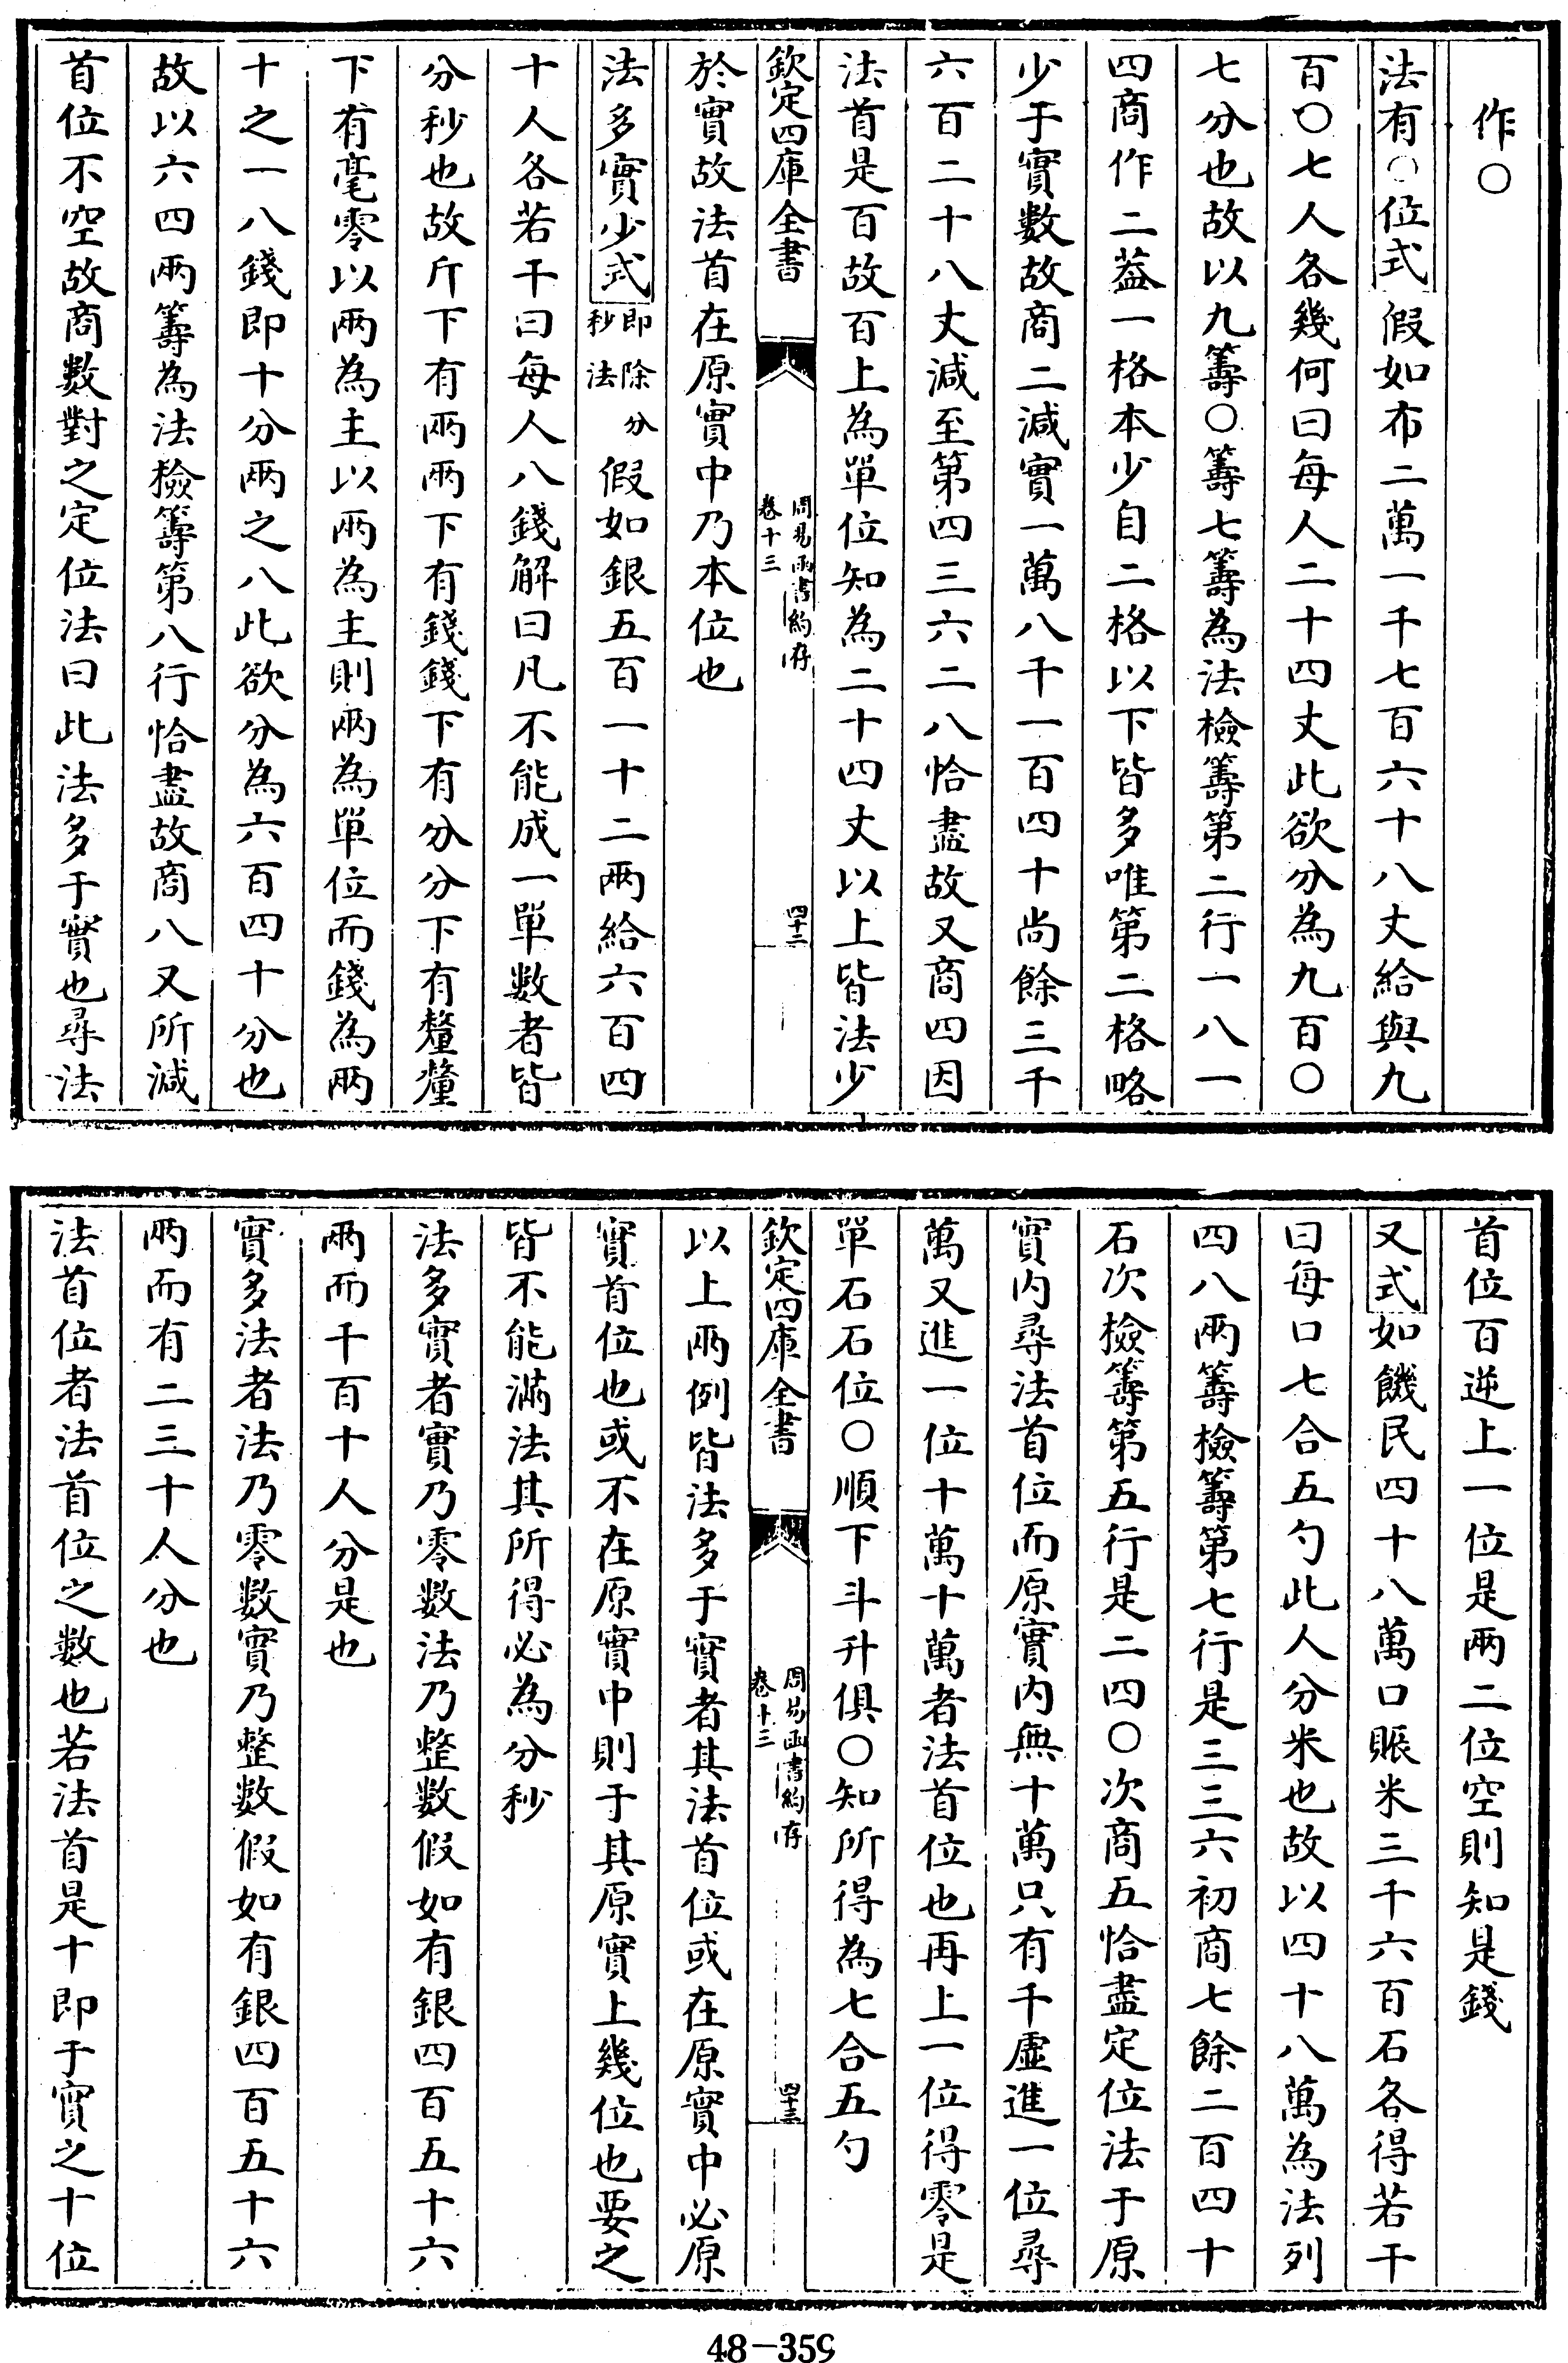 作○
法有○位式假如布二萬一千七百六十八丈給與九
百○七人各幾何曰每人二十四丈此欲分為九百○
七分也故以九籌○籌七籌為法檢籌第二行一八一
四商作二葢一格本少自二格以下皆多唯第二格略
少于實數故商二減實一萬八千一百四十尚餘三千
六百二十八丈減至第四三六二八恰盡故又商四因
法首是百故百上為單位知為二十四丈以上皆法少
欽定四庫全書
周易函書約存
卷十三
四十二
於實故法首在原實中乃本位也
法多實少式即除分秒法假如銀五百一十二兩給六百四
十人各若干曰每人八錢解曰凡不能成一單數者皆
分秒也故斤下有兩兩下有錢錢下有分分下有釐釐
下有毫零以兩為主以兩為主則兩為單位而錢為兩
十之一八錢即十分兩之八此欲分為六百四十分也
故以六四兩籌為法檢籌第八行恰盡故商八又所減
首位不空故商數對之定位法曰此法多于實也尋法
首位百逆上一位是兩二位空則知是錢
又式如饑民四十八萬口賑米三千六百石各得若干
曰每口七合五勺此人分米也故以四十八萬為法列
四八兩籌檢籌第七行是三三六初商七餘二百四十
石次檢籌第五行是二四○次商五恰盡定位法于原
實內尋法首位而原實內無十萬只有千虛進一位尋
萬又進一位十萬十萬者法首位也再上一位得零是
單石石位○順下斗升俱○知所得為七合五勺
欽定四庫全書
周易函書約存
卷十三
四十三
以上兩例皆法多于實者其法首位或在原實中必原
實首位也或不在原實中則于其原實上幾位也要之
皆不能滿法其所得必為分秒
法多實者實乃零數法乃整數假如有銀四百五十六
兩而千百十人分是也
實多法者法乃零數實乃整數假如有銀四百五十六
兩而有二三十人分也
法首位者法首位之數也若法首是十即于實之十位
48-359